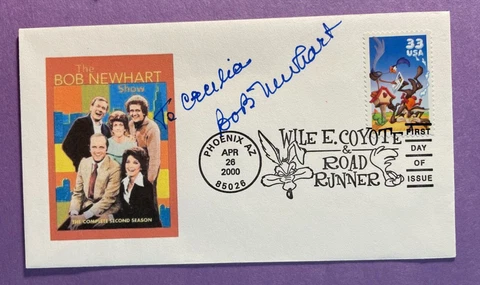 The
BOB NEWHART
Show
THE COMPLETE SECOND SEASON
To Cecilia
Bob Newhart
33
USA
PHOENIX AZ
APR
26
2000
85026
WILE E. COYOTE
&
ROAD
RUNNER
FIRST
DAY
OF
ISSUE